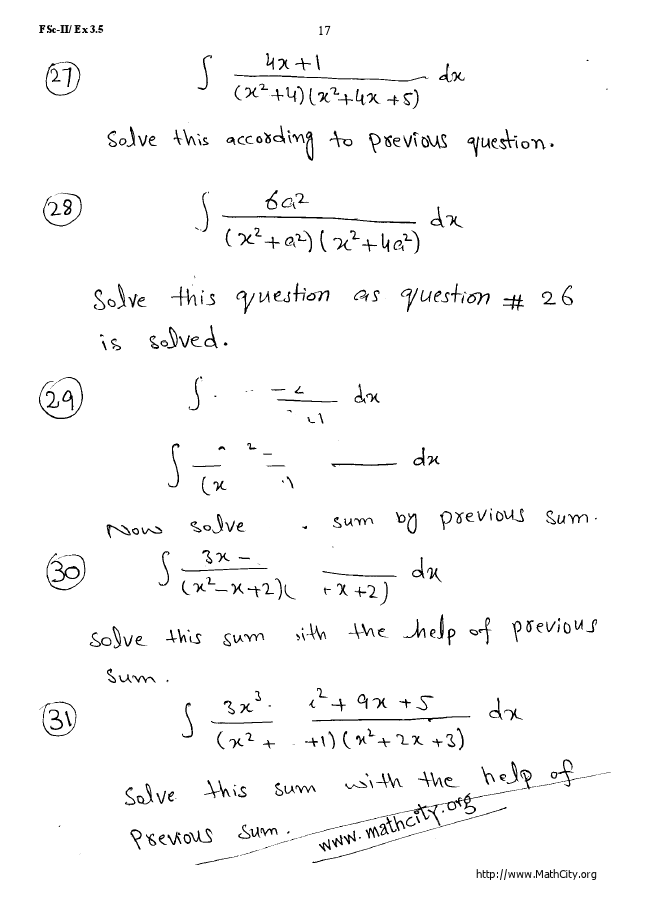 FSc-II/ Ex 3.5
17
(27) ∫ (4x+1)/((x²+4)(x²+4x+5)) dx
Solve this according to previous question.
(28) ∫ 6a²/((x²+a²)(x²+4a²)) dx
Solve this question as question # 26
is solved.
(29) ∫ dx
∫ (x dx
Now solve sum by previous sum.
(30) ∫ 3x - /((x²-x+2)( +x+2)) dx
Solve this sum with the help of previous
sum.
(31) ∫ 3x³ ² + 9x + 5/((x² + +1)(x²+2x+3)) dx
Solve this sum with the help of
Previous sum.
www.mathcity.org
http://www.MathCity.org